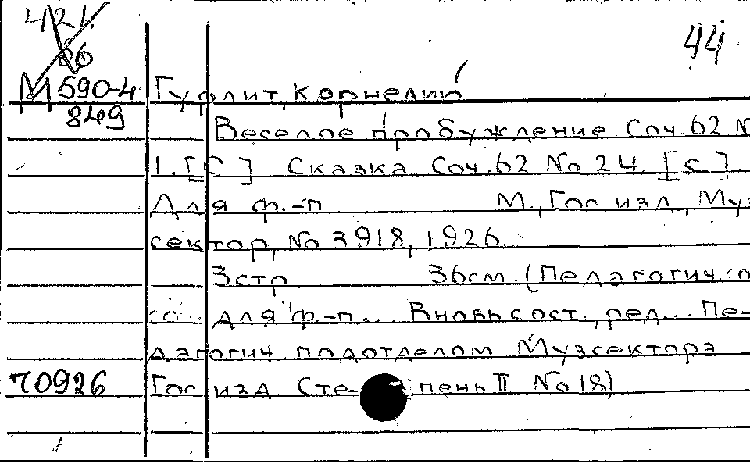 421
66
44
М 590-4 Гурлит, Корнелий
849
Веселое пробуждение Соч. 62 №
1. [С] Сказка Соч. 62 № 24. [С]
Для ф.-п М., Гос изл, Муз
сектор, № 3918, 1926
3стр 36см (Педагогич.
сб. для ф.-п... Вновь сост., ред... Пе-
дагогич. подотделом Музсектора
70926 Гос изд Сте- пень II № 18)